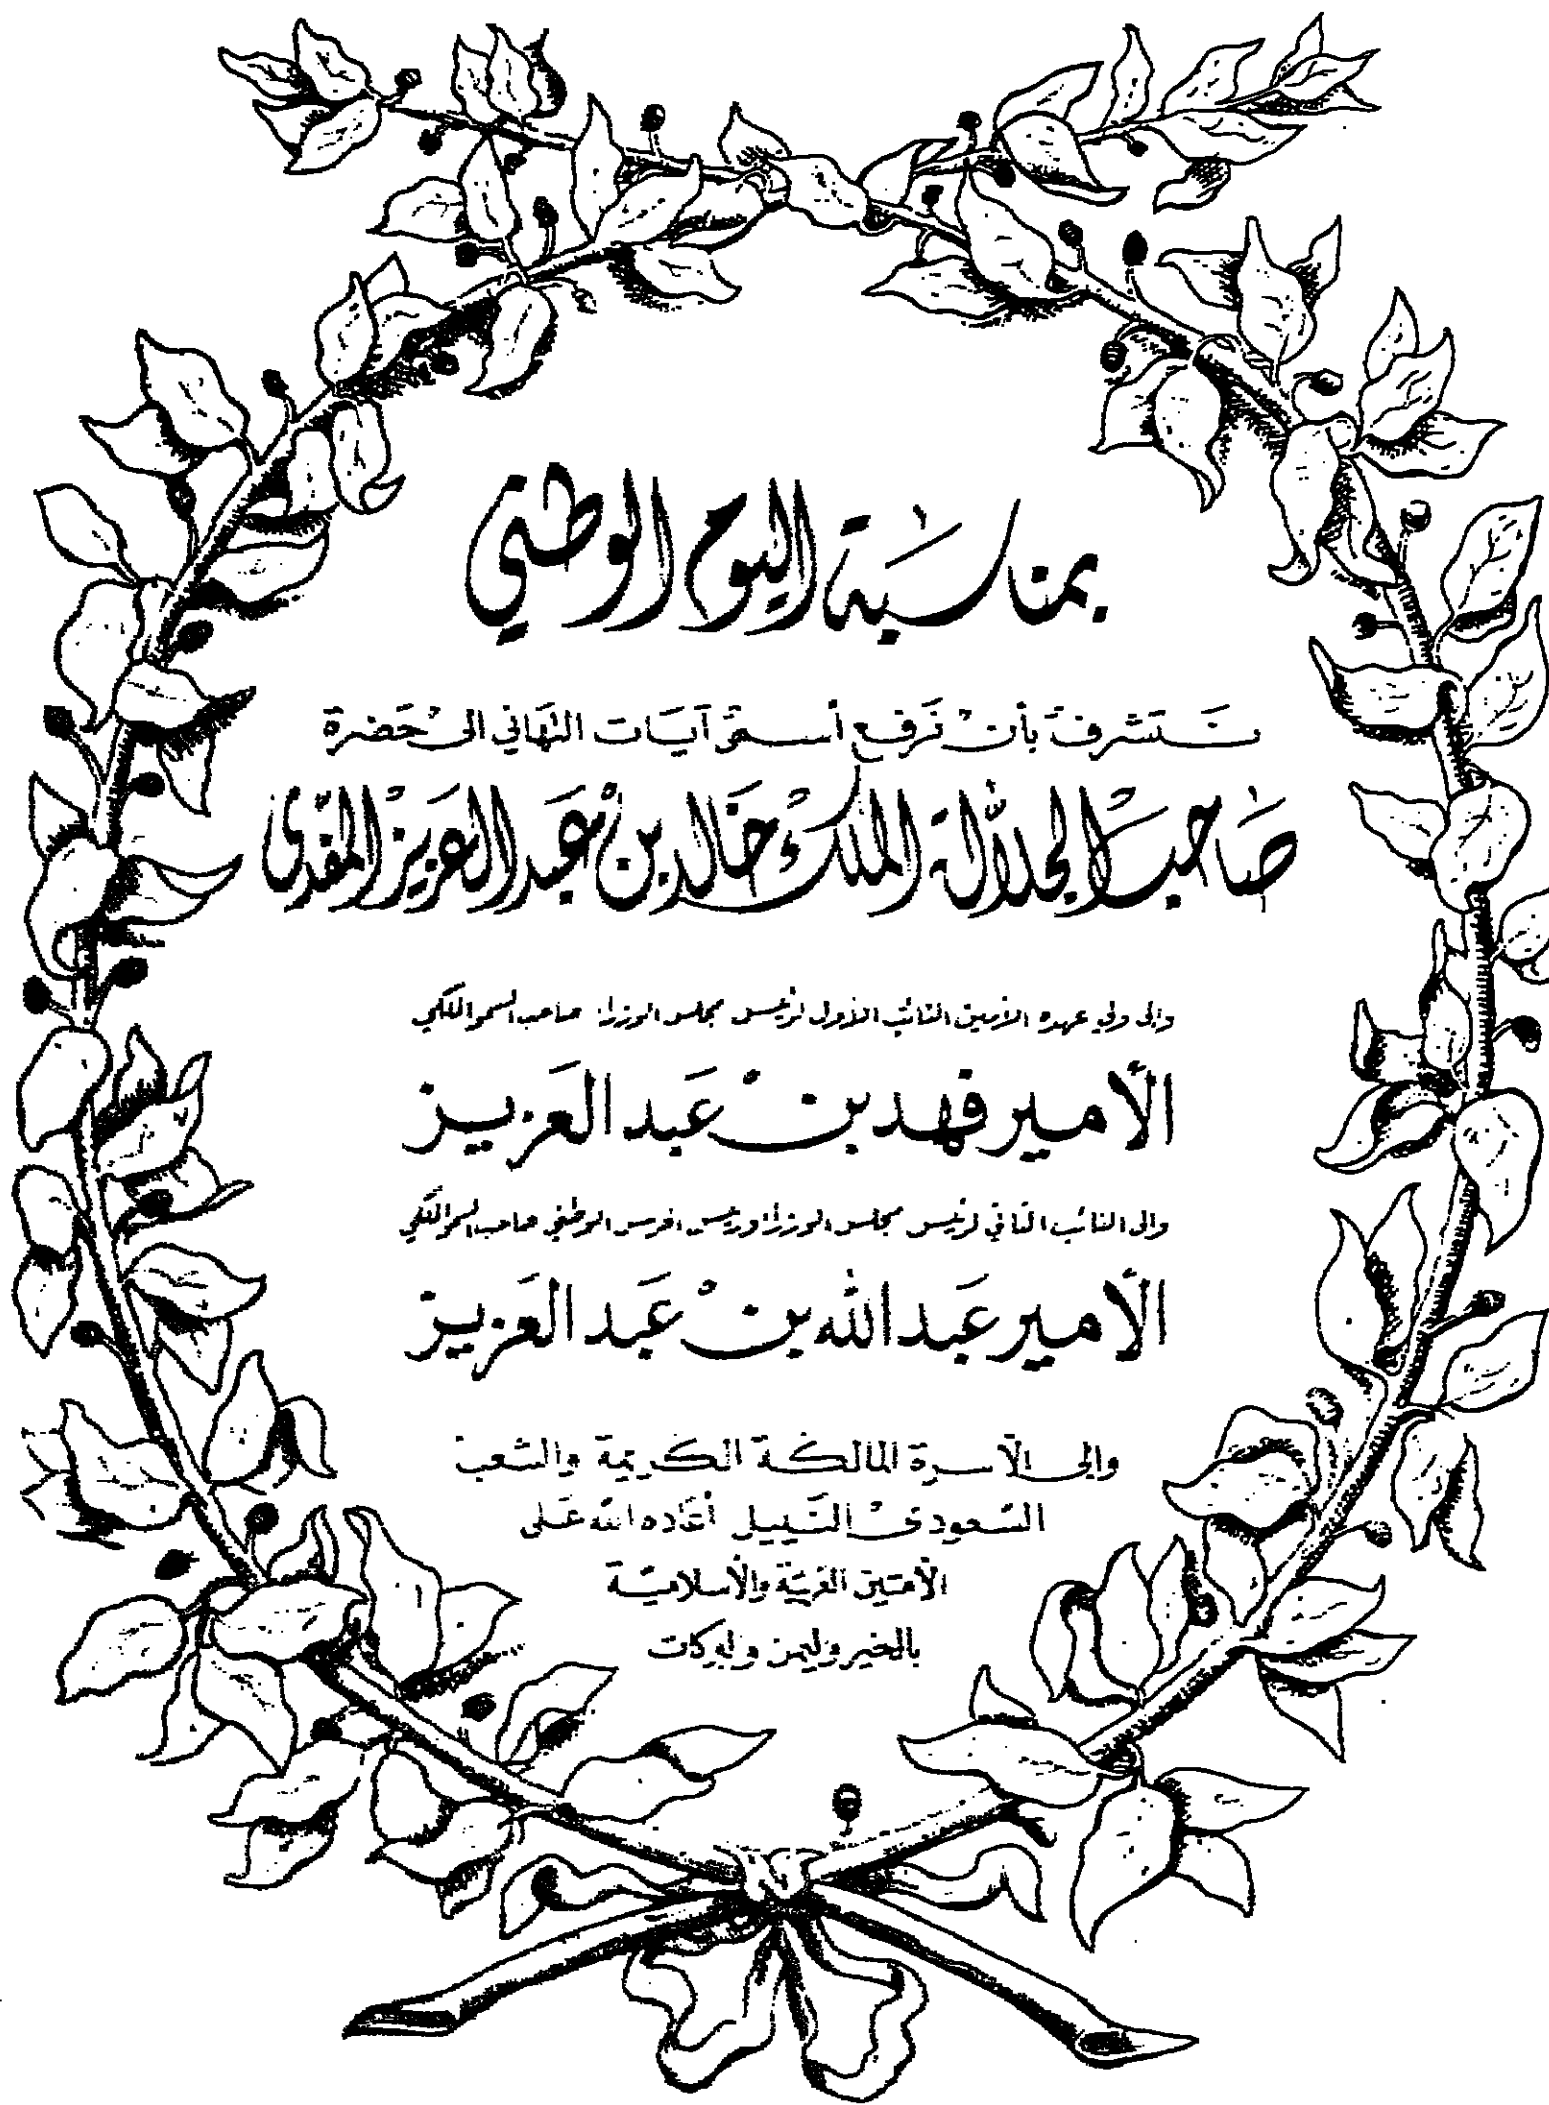 بمناسبة اليوم الوطني
نتشرف بأن نرفع أسمى آيات التهاني الى حضرة
صاحب الجلالة الملك خالد بن عبد العزيز المفدى
والى ولي عهده الأمين النائب الأول لرئيس مجلس الوزراء صاحب السمو الملكي
الأمير فهد بن عبد العزيز
والى النائب الثاني لرئيس مجلس الوزراء ورئيس الحرس الوطني صاحب السمو الملكي
الأمير عبد الله بن عبد العزيز
والى الأسرة المالكة الكريمة والشعب
السعودي النبيل أعاده الله على
الأمتين العربية والأسلامية
بالخير واليمن والبركات